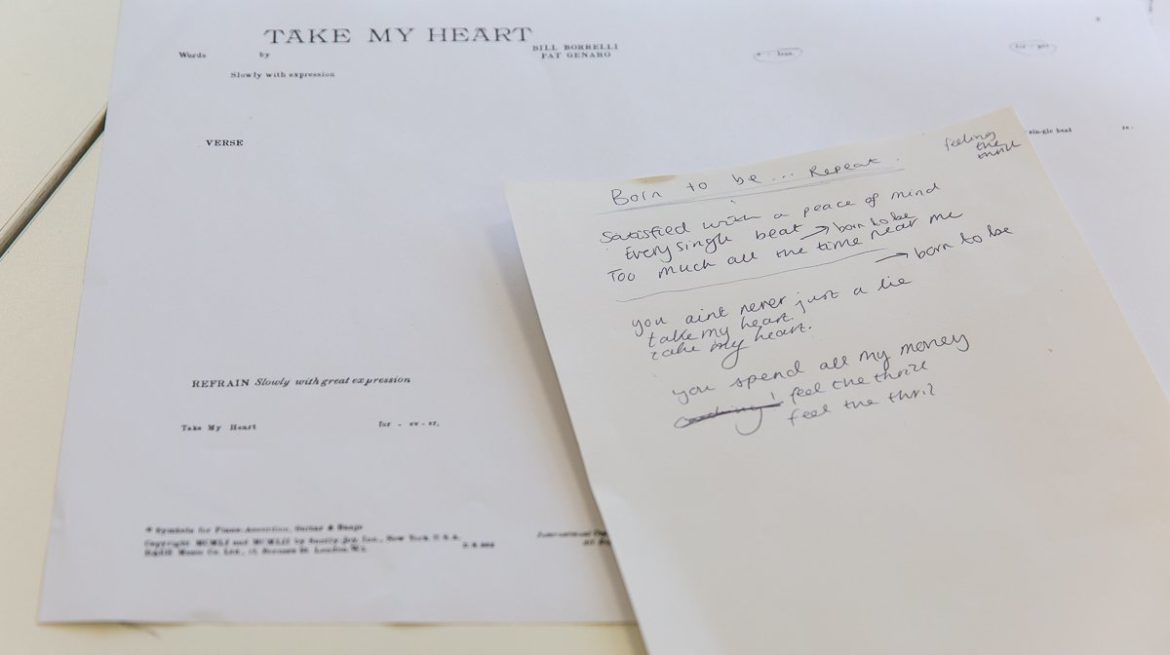 TAKE MY HEART
Words by
BILL BORRELLI
PAT GENARO
Slowly with expression
for - get
single beat
VERSE
REFRAIN Slowly with great expression
Take My Heart for - ev - er,
* Symbols for Piano-Accordion, Guitar & Banjo
Copyright MCMLI and MCMLII by Inc., New York U.S.A.
Music Co. Ltd., St. London, W.1.
International
All
feeling
the
thrill
Born to be... Repeat.
Satisfied with a peace of mind
Every single beat → born to be
Too much all the time near me
→ born to be
you aint never just a lie
take my heart.
take my heart.
you spend all my money
feel the thrill
feel the thril